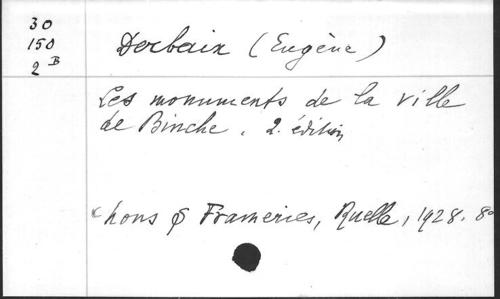 30
150
2 B
Derbaix (Eugène)
Les monuments de la ville
de Binche. 2. édition
Mons & Frameries, Ruelle, 1928. 8°